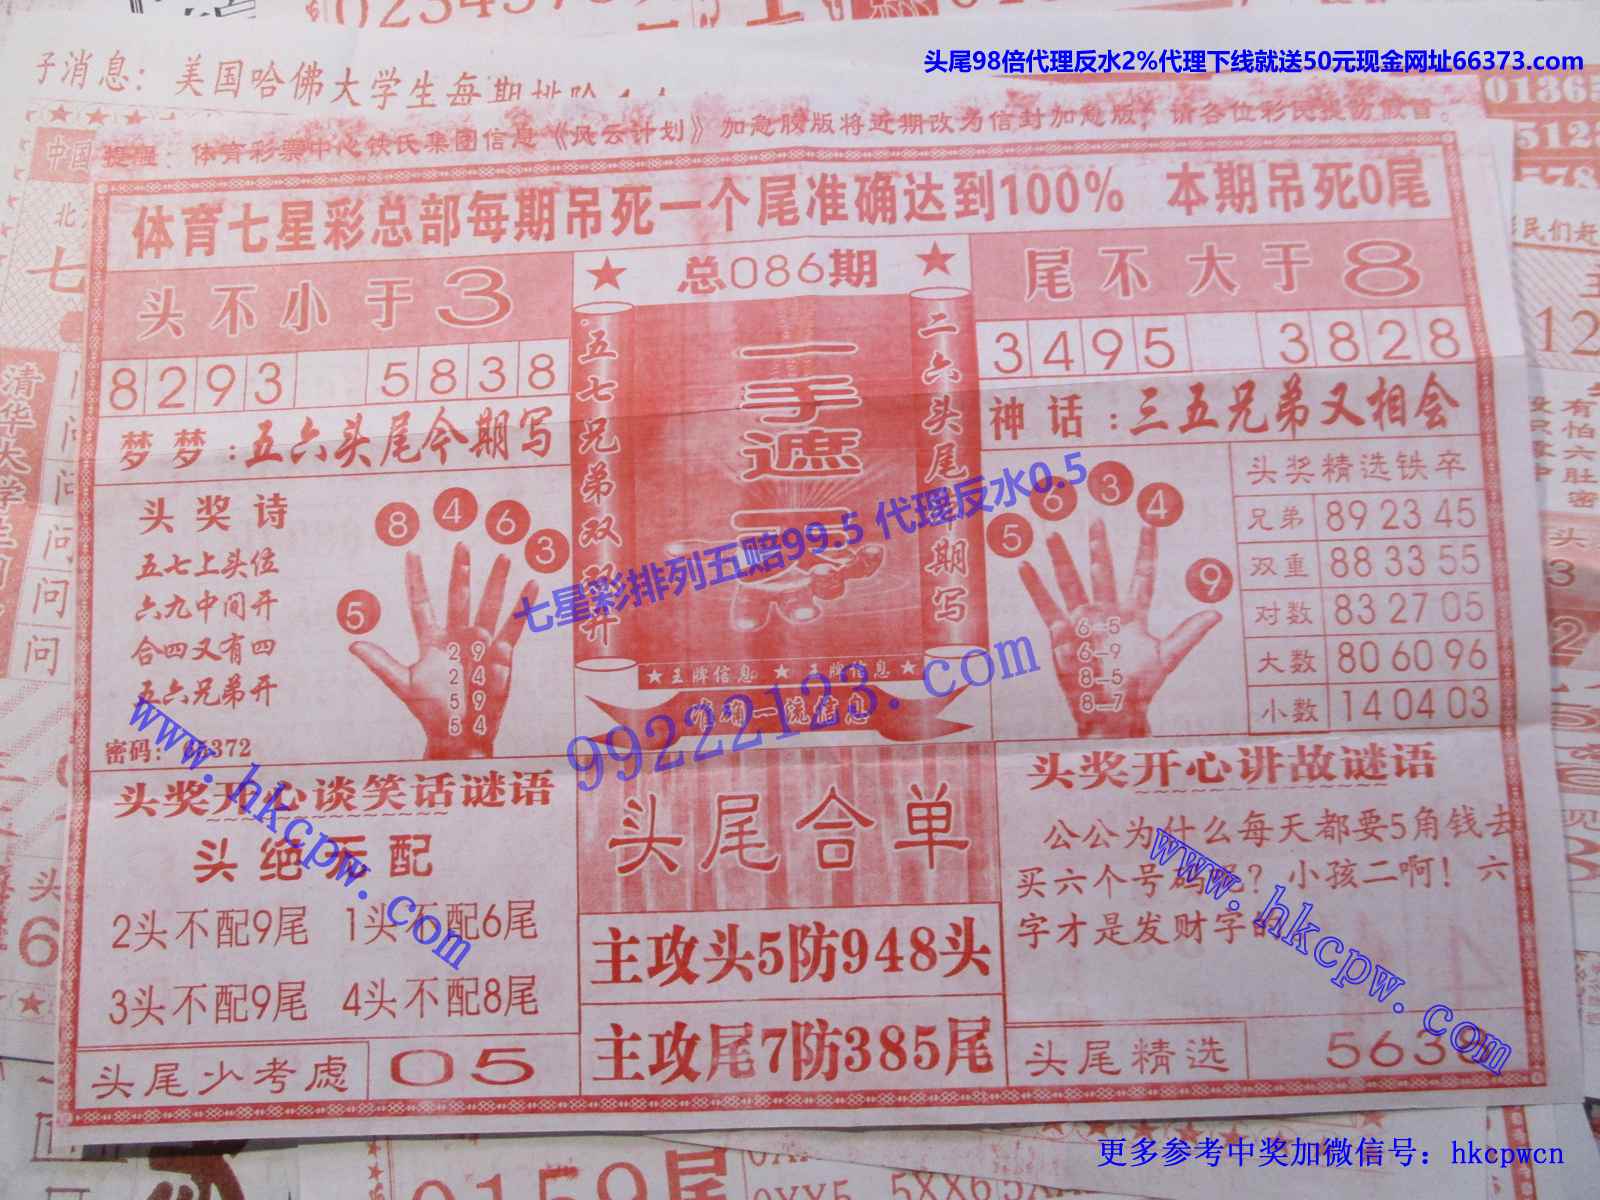 头尾98倍代理反水2%代理下线就送50元现金网址66373.com
子消息：美国哈佛大学生每期排除
提醒：体育彩票中心铁氏集团信息《风云计划》加急胶版将近期改为信封加急版，请各位彩民提防假冒。
体育七星彩总部每期吊死一个尾准确达到100% 本期吊死0尾
头不小于3
8293 5838
梦梦：五六头尾今期写
★ 总086期 ★
五七兄弟双双开
一手遮天
二六头尾今期写
尾不大于8
3495 3828
神话：三五兄弟又相会
头奖诗
五七上头位
六九中间开
合四又有四
五六兄弟开
5 8 4 6 3
2 9
2 4
5 9
5 4
七星彩排列五赔99.5 代理反水0.5
★王牌信息 ★ 王牌信息★
准确一流信息
99222123.com
5 6 3 4 9
6—5
6—9
8—5
8—7
头奖精选铁卒
兄弟 89 23 45
双重 88 33 55
对数 83 27 05
大数 80 60 96
小数 14 04 03
www.hkcpw.com
头奖开心谈笑话谜语
头绝无配
2头不配9尾 1头不配6尾
3头不配9尾 4头不配8尾
头尾少考虑 05
头尾合单
主攻头5防948头
主攻尾7防385尾
头奖开心讲故谜语
公公为什么每天都要5角钱去
买六个号码呢？小孩二啊！六
字才是发财字的
www.hkcpw.com
头尾精选 563
更多参考中奖加微信号：hkcpwcn